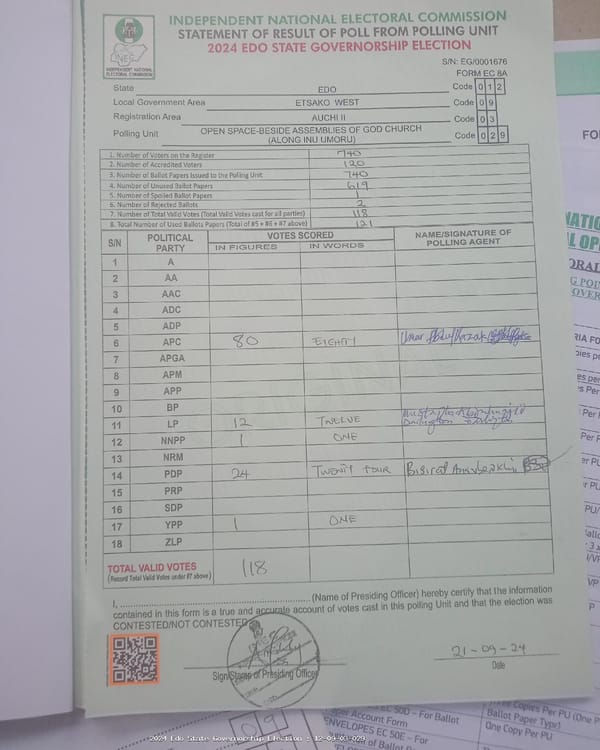 INDEPENDENT NATIONAL ELECTORAL COMMISSION
STATEMENT OF RESULT OF POLL FROM POLLING UNIT
2024 EDO STATE GOVERNORSHIP ELECTION
INDEPENDENT NATIONAL ELECTORAL COMMISSION
S/N: EG/0001676
FORM EC 8A
State EDO Code 0 1 2
Local Government Area ETSAKO WEST Code 0 9
Registration Area AUCHI II Code 0 3
Polling Unit OPEN SPACE-BESIDE ASSEMBLIES OF GOD CHURCH (ALONG INU UMORU) Code 0 2 9
1. Number of Voters on the Register 740
2. Number of Accredited Voters 120
3. Number of Ballot Papers Issued to the Polling Unit 740
4. Number of Unused Ballot Papers 619
5. Number of Spoiled Ballot Papers 1
6. Number of Rejected Ballots 2
7. Number of Total Valid Votes (Total Valid Votes cast for all parties) 118
8. Total Number of Used Ballots Papers (Total of #5 + #6 + #7 above) 121
S/N POLITICAL PARTY VOTES SCORED NAME/SIGNATURE OF POLLING AGENT
IN FIGURES IN WORDS
1 A
2 AA
3 AAC
4 ADC
5 ADP
6 APC 80 EIGHTY Umar
7 APGA
8 APM
9 APP
10 BP
11 LP 12 TWELVE
12 NNPP 1 ONE
13 NRM
14 PDP 24 TWENTY FOUR
15 PRP
16 SDP
17 YPP 1 ONE
18 ZLP
TOTAL VALID VOTES 118
(Record Total Valid Votes under #7 above)
I, ............ (Name of Presiding Officer) hereby certify that the information
contained in this form is a true and accurate account of votes cast in this polling Unit and that the election was
CONTESTED/NOT CONTESTED
Sign/Stamp of Presiding Officer
21-09-24
Date
2024 Edo State Governorship Election : 12-09-03-029
09
EC 50D – For Ballot
Paper Account Form
ENVELOPES EC 50E – For
Copies Per PU (One P
Ballot Paper Type)
One Copy Per PU